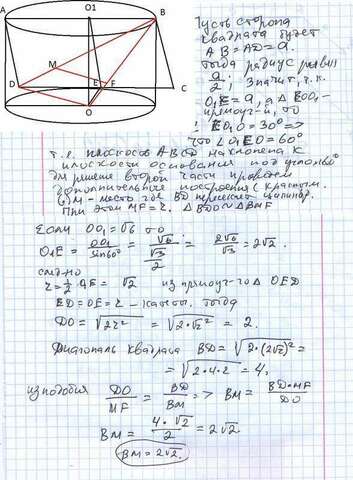 A
O1
B
M
D
E
F
C
O
Пусть сторона
квадрата будет
AB = AD = a.
Тогда радиус равен
a/2; Значит, т.к.
O₁E = a, а Δ EOO₁ -
прямоуг-й, то
∠EO₁O = 30° =>
что ∠O₁EO = 60°
т.е. плоскость ABCD наклонена к
плоскости основания под углом 60°
Для решения второй части проведем
дополнительные построения (красным.
M - место где BD пересек. цилиндр.
При этом MF = r. Δ BDO ~ Δ BMF
Если OO₁ = √6 то
O₁E = OO₁/sin60° = √6/(√3/2) = 2√6/√3 = 2√2.
след-но
r = ½ O₁E = √2 из прямоуг-го Δ OED
ED = OE = r - катеты, тогда
DO = √2r² = √2·(√2)² = 2.
Диагональ квадрата BD = √2·(2√2)² =
= √2·4·2 = 4,
из подобия DO/MF = BD/BM => BM = BD·MF/DO
BM = 4·√2/2 = 2√2
BM = 2√2.